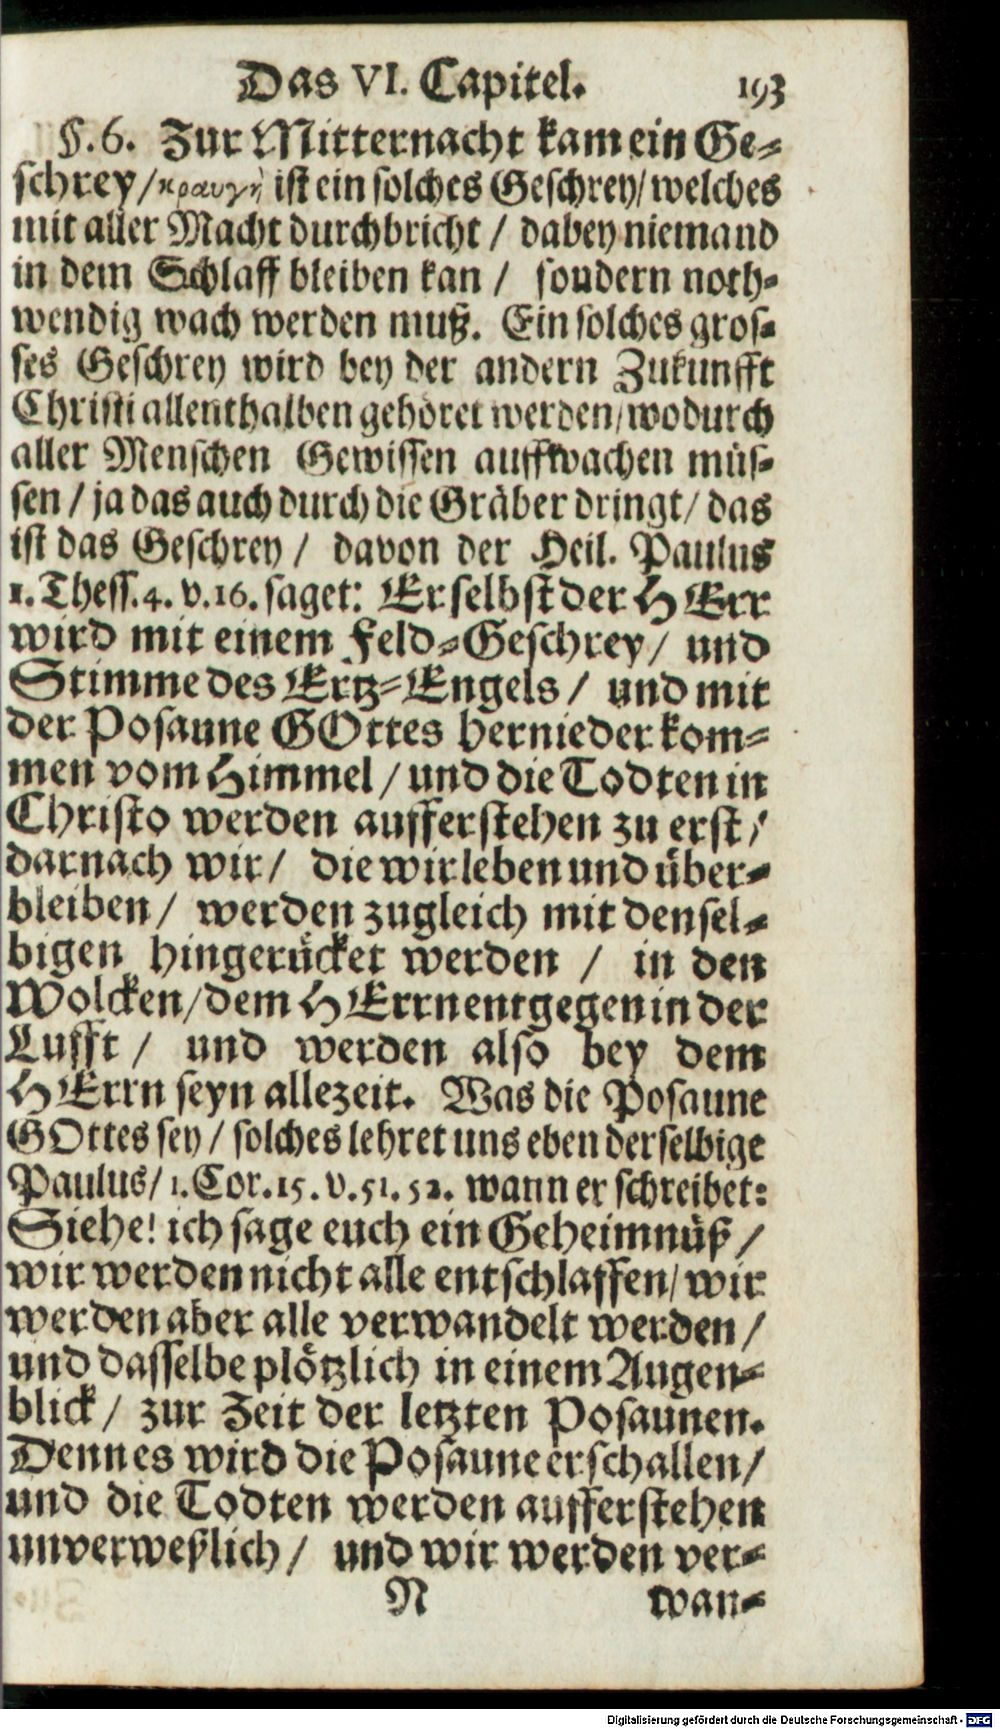 Das VI. Capitel. 193
§. 6. Zur Mitternacht kam ein Ge-
schrey/ κραυγὴ ist ein solches Geschrey/ welches
mit aller Macht durchbricht / dabey niemand
in dem Schlaff bleiben kan / sondern noth-
wendig wach werden muß. Ein solches gros-
ses Geschrey wird bey der andern Zukunfft
Christi allenthalben gehöret werden/ wodurch
aller Menschen Gewissen auffwachen müs-
sen / ja das auch durch die Gräber dringt/ das
ist das Geschrey / davon der Heil. Paulus
1. Thess. 4. v. 16. saget: Er selbst der HErr
wird mit einem Feld-Geschrey/ und
Stimme des Ertz-Engels / und mit
der Posaune GOttes hernieder kom-
men vom Himmel / und die Todten in
Christo werden aufferstehen zu erst /
darnach wir / die wir leben und über-
bleiben / werden zugleich mit densel-
bigen hingerücket werden / in den
Wolcken/ dem HErrn entgegen in der
Lufft / und werden also bey dem
HErrn seyn allezeit. Was die Posaune
GOttes sey / solches lehret uns eben derselbige
Paulus/ 1. Cor. 15. v. 51. 52. wann er schreibet:
Siehe! ich sage euch ein Geheimnüß /
wir werden nicht alle entschlaffen/ wir
werden aber alle verwandelt werden /
und dasselbe plötzlich in einem Augen-
blick / zur Zeit der letzten Posaunen.
Denn es wird die Posaune erschallen /
und die Todten werden aufferstehen
unverweßlich / und wir werden ver-
N wan-
Digitalisierung gefördert durch die Deutsche Forschungsgemeinschaft - DFG